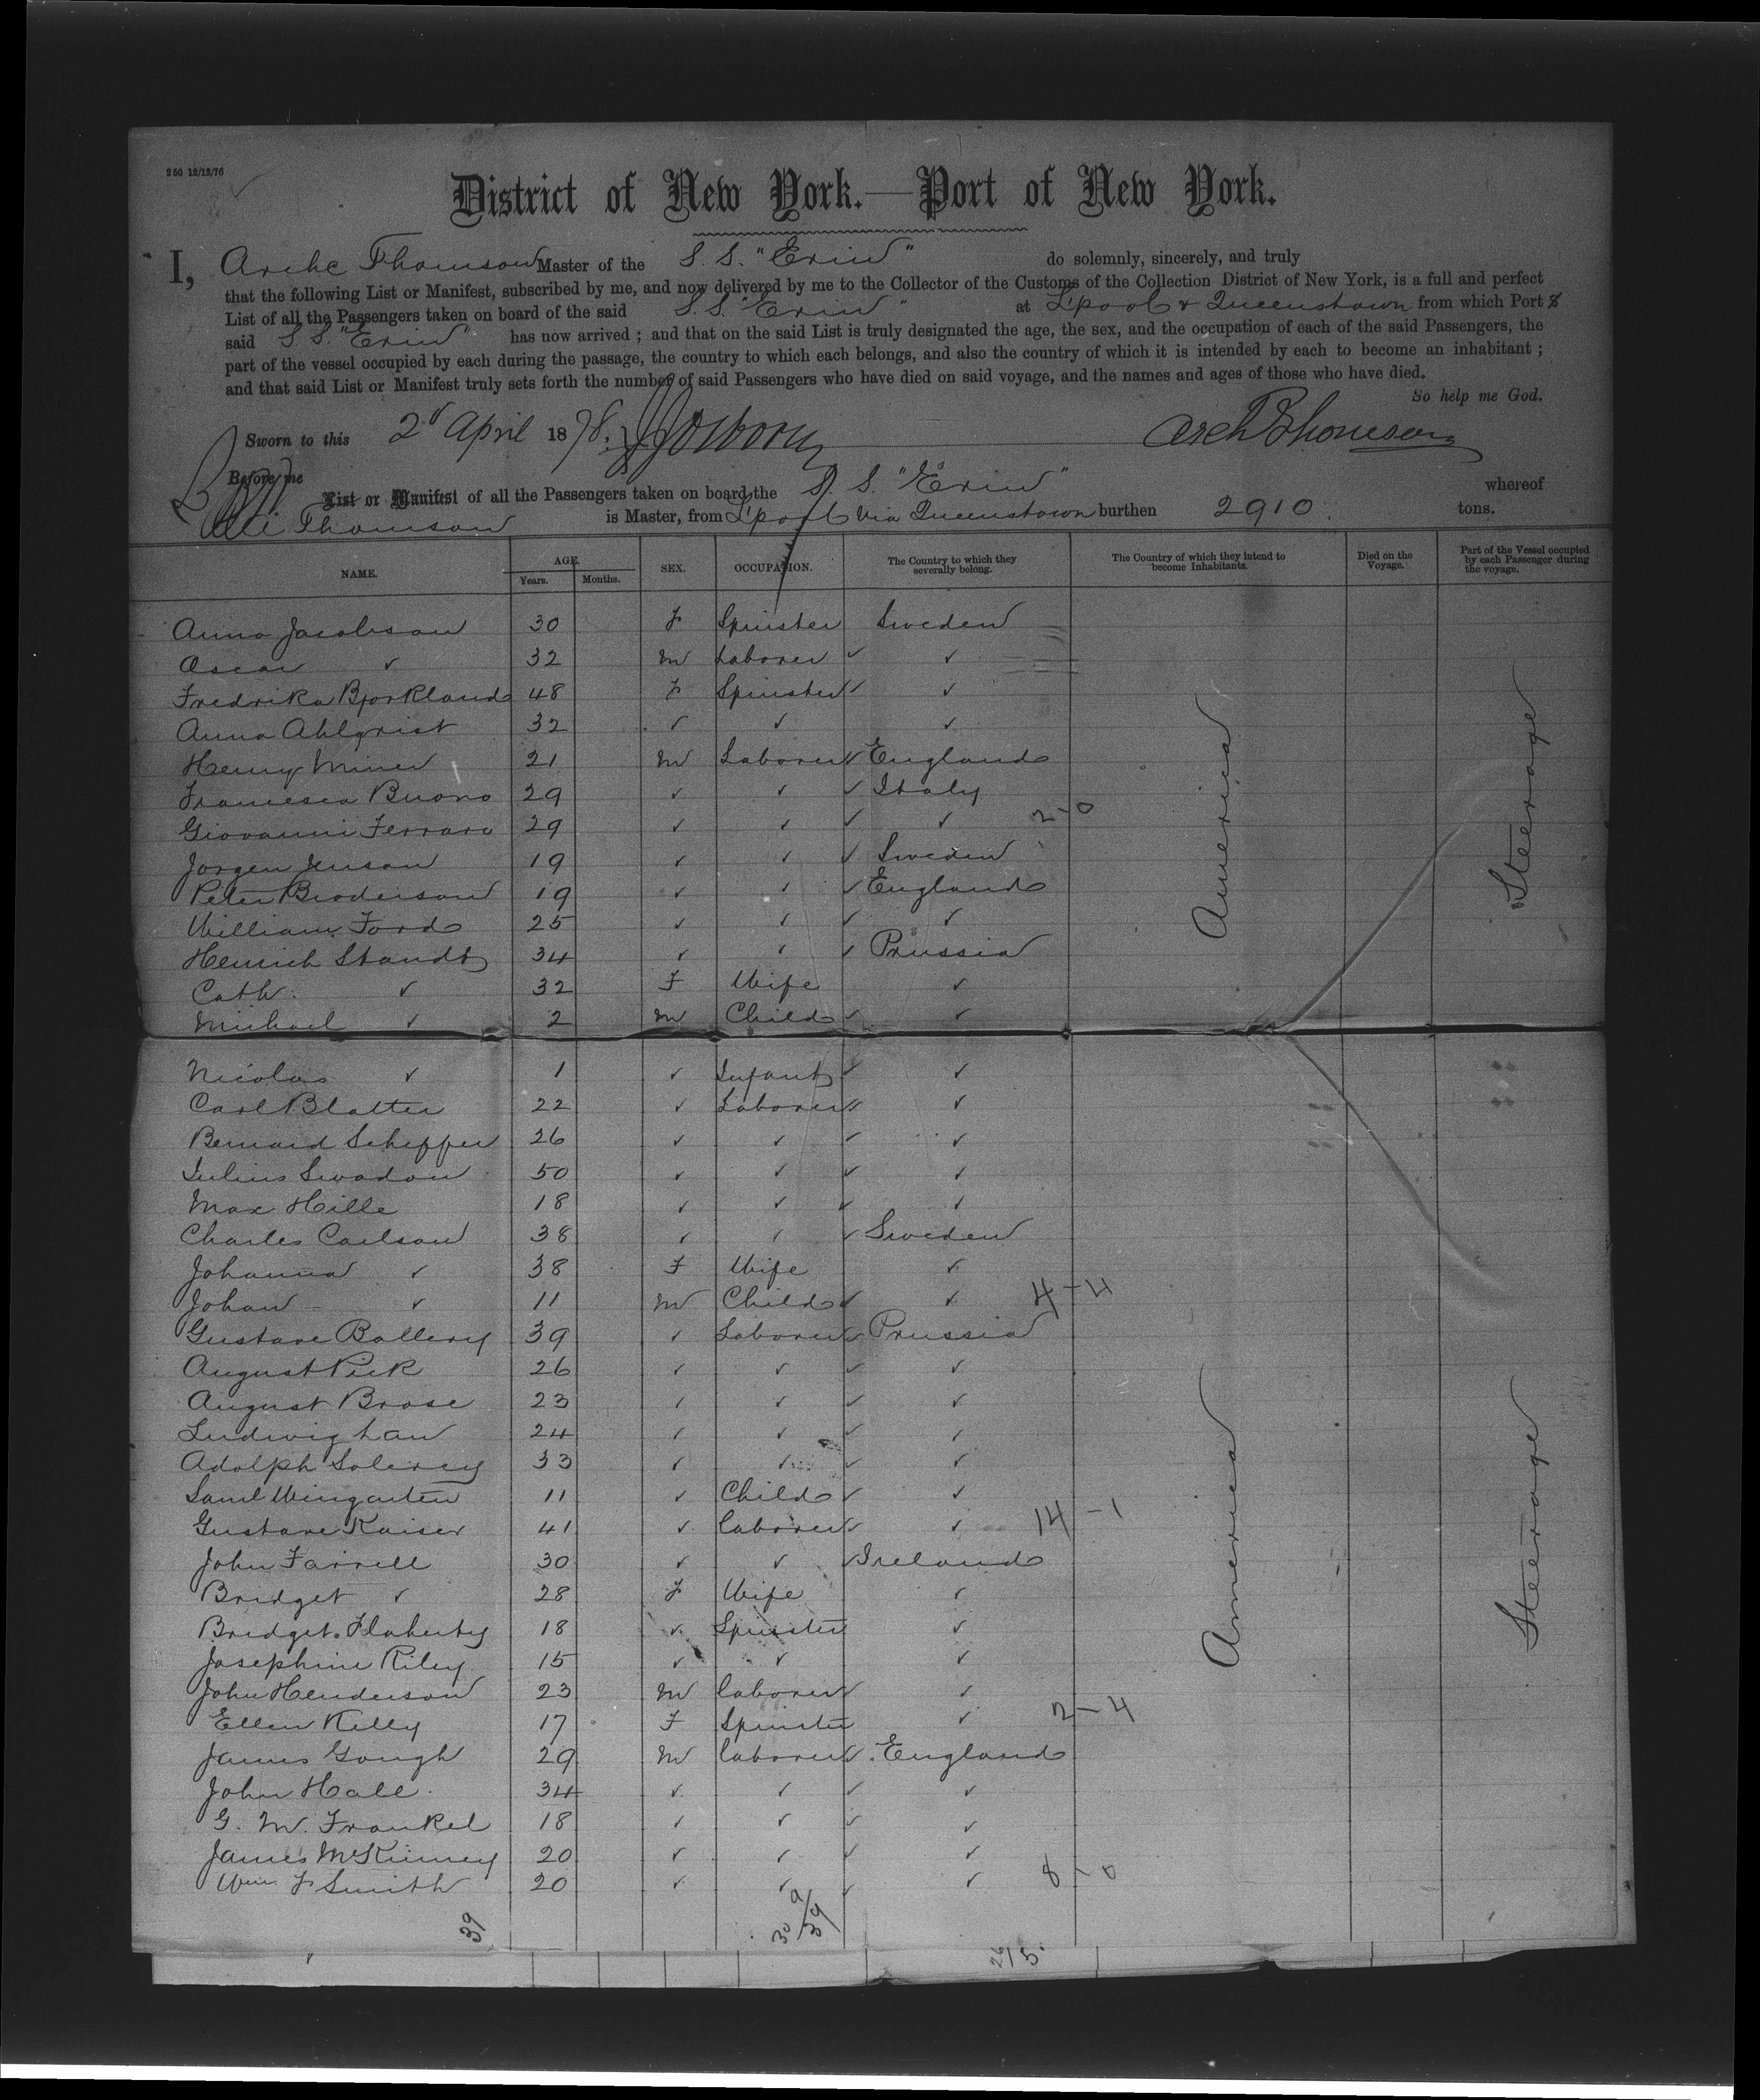 250 12/12/76
District of New York.—Port of New York.
I, Archd Thomson Master of the S. S. "Erin" do solemnly, sincerely, and truly
that the following List or Manifest, subscribed by me, and now delivered by me to the Collector of the Customs of the Collection District of New York, is a full and perfect
List of all the Passengers taken on board of the said S.S. "Erin" at L'pool & Queenstown from which Port s
said S S. "Erin" has now arrived ; and that on the said List is truly designated the age, the sex, and the occupation of each of the said Passengers, the
part of the vessel occupied by each during the passage, the country to which each belongs, and also the country of which it is intended by each to become an inhabitant ;
and that said List or Manifest truly sets forth the number of said Passengers who have died on said voyage, and the names and ages of those who have died.
So help me God.
Sworn to this 2d April 1878. Arch Thomson
Before me
List or Manifest of all the Passengers taken on board the S. S. "Erin" whereof
Thomson is Master, from L'pool via Queenstown burthen 2910 tons.
NAME. AGE. Years. Months. SEX. OCCUPATION. The Country to which they severally belong. The Country of which they intend to become Inhabitants. Died on the Voyage. Part of the Vessel occupied by each Passenger during the voyage.
Anna Jacobson 30 F Spinster Sweden
Oscar ✓ 32 M Laborer ✓ ✓
Fredrika Bjorkland 48 F Spinster ✓ ✓
Anna Ahlqrist 32 ✓ ✓ ✓
Henry Miner 21 M Laborer ✓ England
Francesca Buono 29 ✓ ✓ ✓ Italy
Giovanni Ferraro 29 ✓ ✓ ✓ ✓ 2-0
Jorgen Jenson 19 ✓ ✓ ✓ Sweden
Peter Broderson 19 ✓ ✓ ✓ England
William Ford 25 ✓ ✓ ✓ ✓
Heinrich Standt 34 ✓ ✓ ✓ Prussia
Cath. ✓ 32 F Wife ✓
Michael ✓ 2 M Child ✓ ✓
America
Steerage
Nicolas ✓ 1 ✓ Infant ✓ ✓
Carl Blatter 22 ✓ Laborer ✓ ✓
Bernard Scheffer 26 ✓ ✓ ✓ ✓
Julius Swadow 50 ✓ ✓ ✓ ✓
Max Hille 18 ✓ ✓ ✓ ✓
Charles Carlson 38 ✓ ✓ ✓ Sweden
Johanna ✓ 38 F Wife ✓
Johan ✓ 11 M Child ✓ ✓ 4-4
Gustave Ballery 39 ✓ Laborer ✓ Prussia
August Pick 26 ✓ ✓ ✓ ✓
August Brose 23 ✓ ✓ ✓ ✓
Ludwig Lau 24 ✓ ✓ ✓ ✓
Adolph 33 ✓ ✓ ✓ ✓
Saml Wingarten 11 ✓ Child ✓ ✓
Gustave Kaiser 41 ✓ laborer ✓ ✓ 14-1
John Farrell 30 ✓ ✓ ✓ Ireland
Bridget ✓ 28 F Wife ✓
Bridget Flaherty 18 ✓ Spinster ✓
Josephine Riley 15 ✓ ✓ ✓
John Henderson 23 M laborer ✓ ✓
Ellen Kelly 17 F Spinster ✓ 2-4
James Gough 29 M laborer ✓ England
John Hall 34 ✓ ✓ ✓ ✓
G. M. Frankel 18 ✓ ✓ ✓ ✓
James McKinney 20 ✓ ✓ ✓ ✓
Wm F Smith 20 ✓ ✓ ✓ ✓ 8-0
America
Steerage
39
30 9/39
26/5.